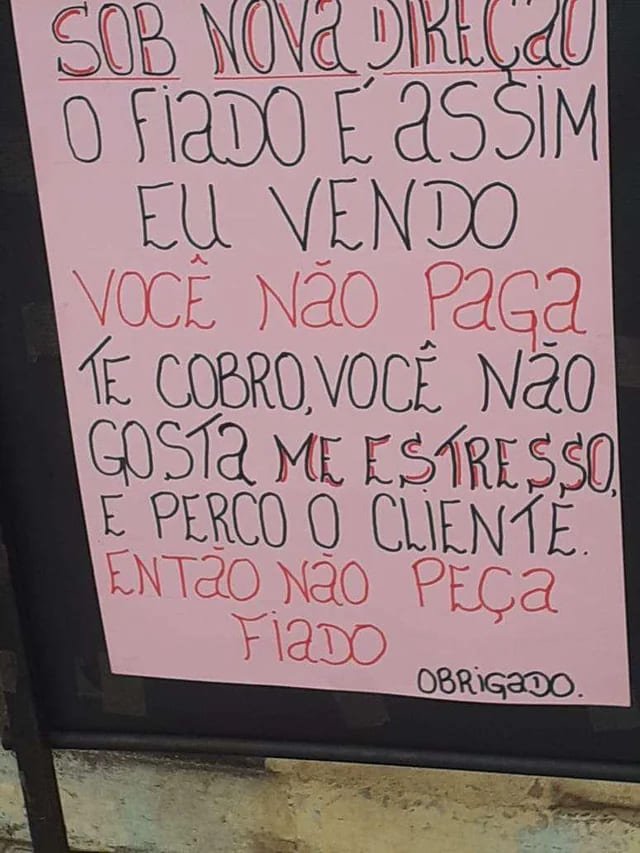 SOB NOVA DIREÇÃO
O FIADO É ASSIM
EU VENDO
VOCÊ NÃO PAGA
TE COBRO, VOCÊ NÃO
GOSTA ME ESTRESSO,
E PERCO O CLIENTE.
ENTÃO NÃO PEÇA
FIADO
OBRIGADO.